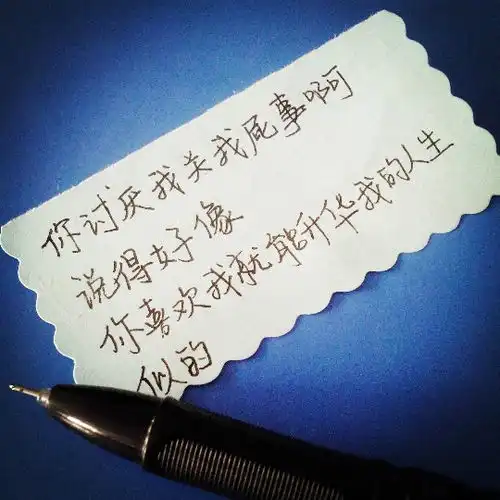 你讨厌我关我屁事啊
说得好像
你喜欢我就能升华我的人生
似的